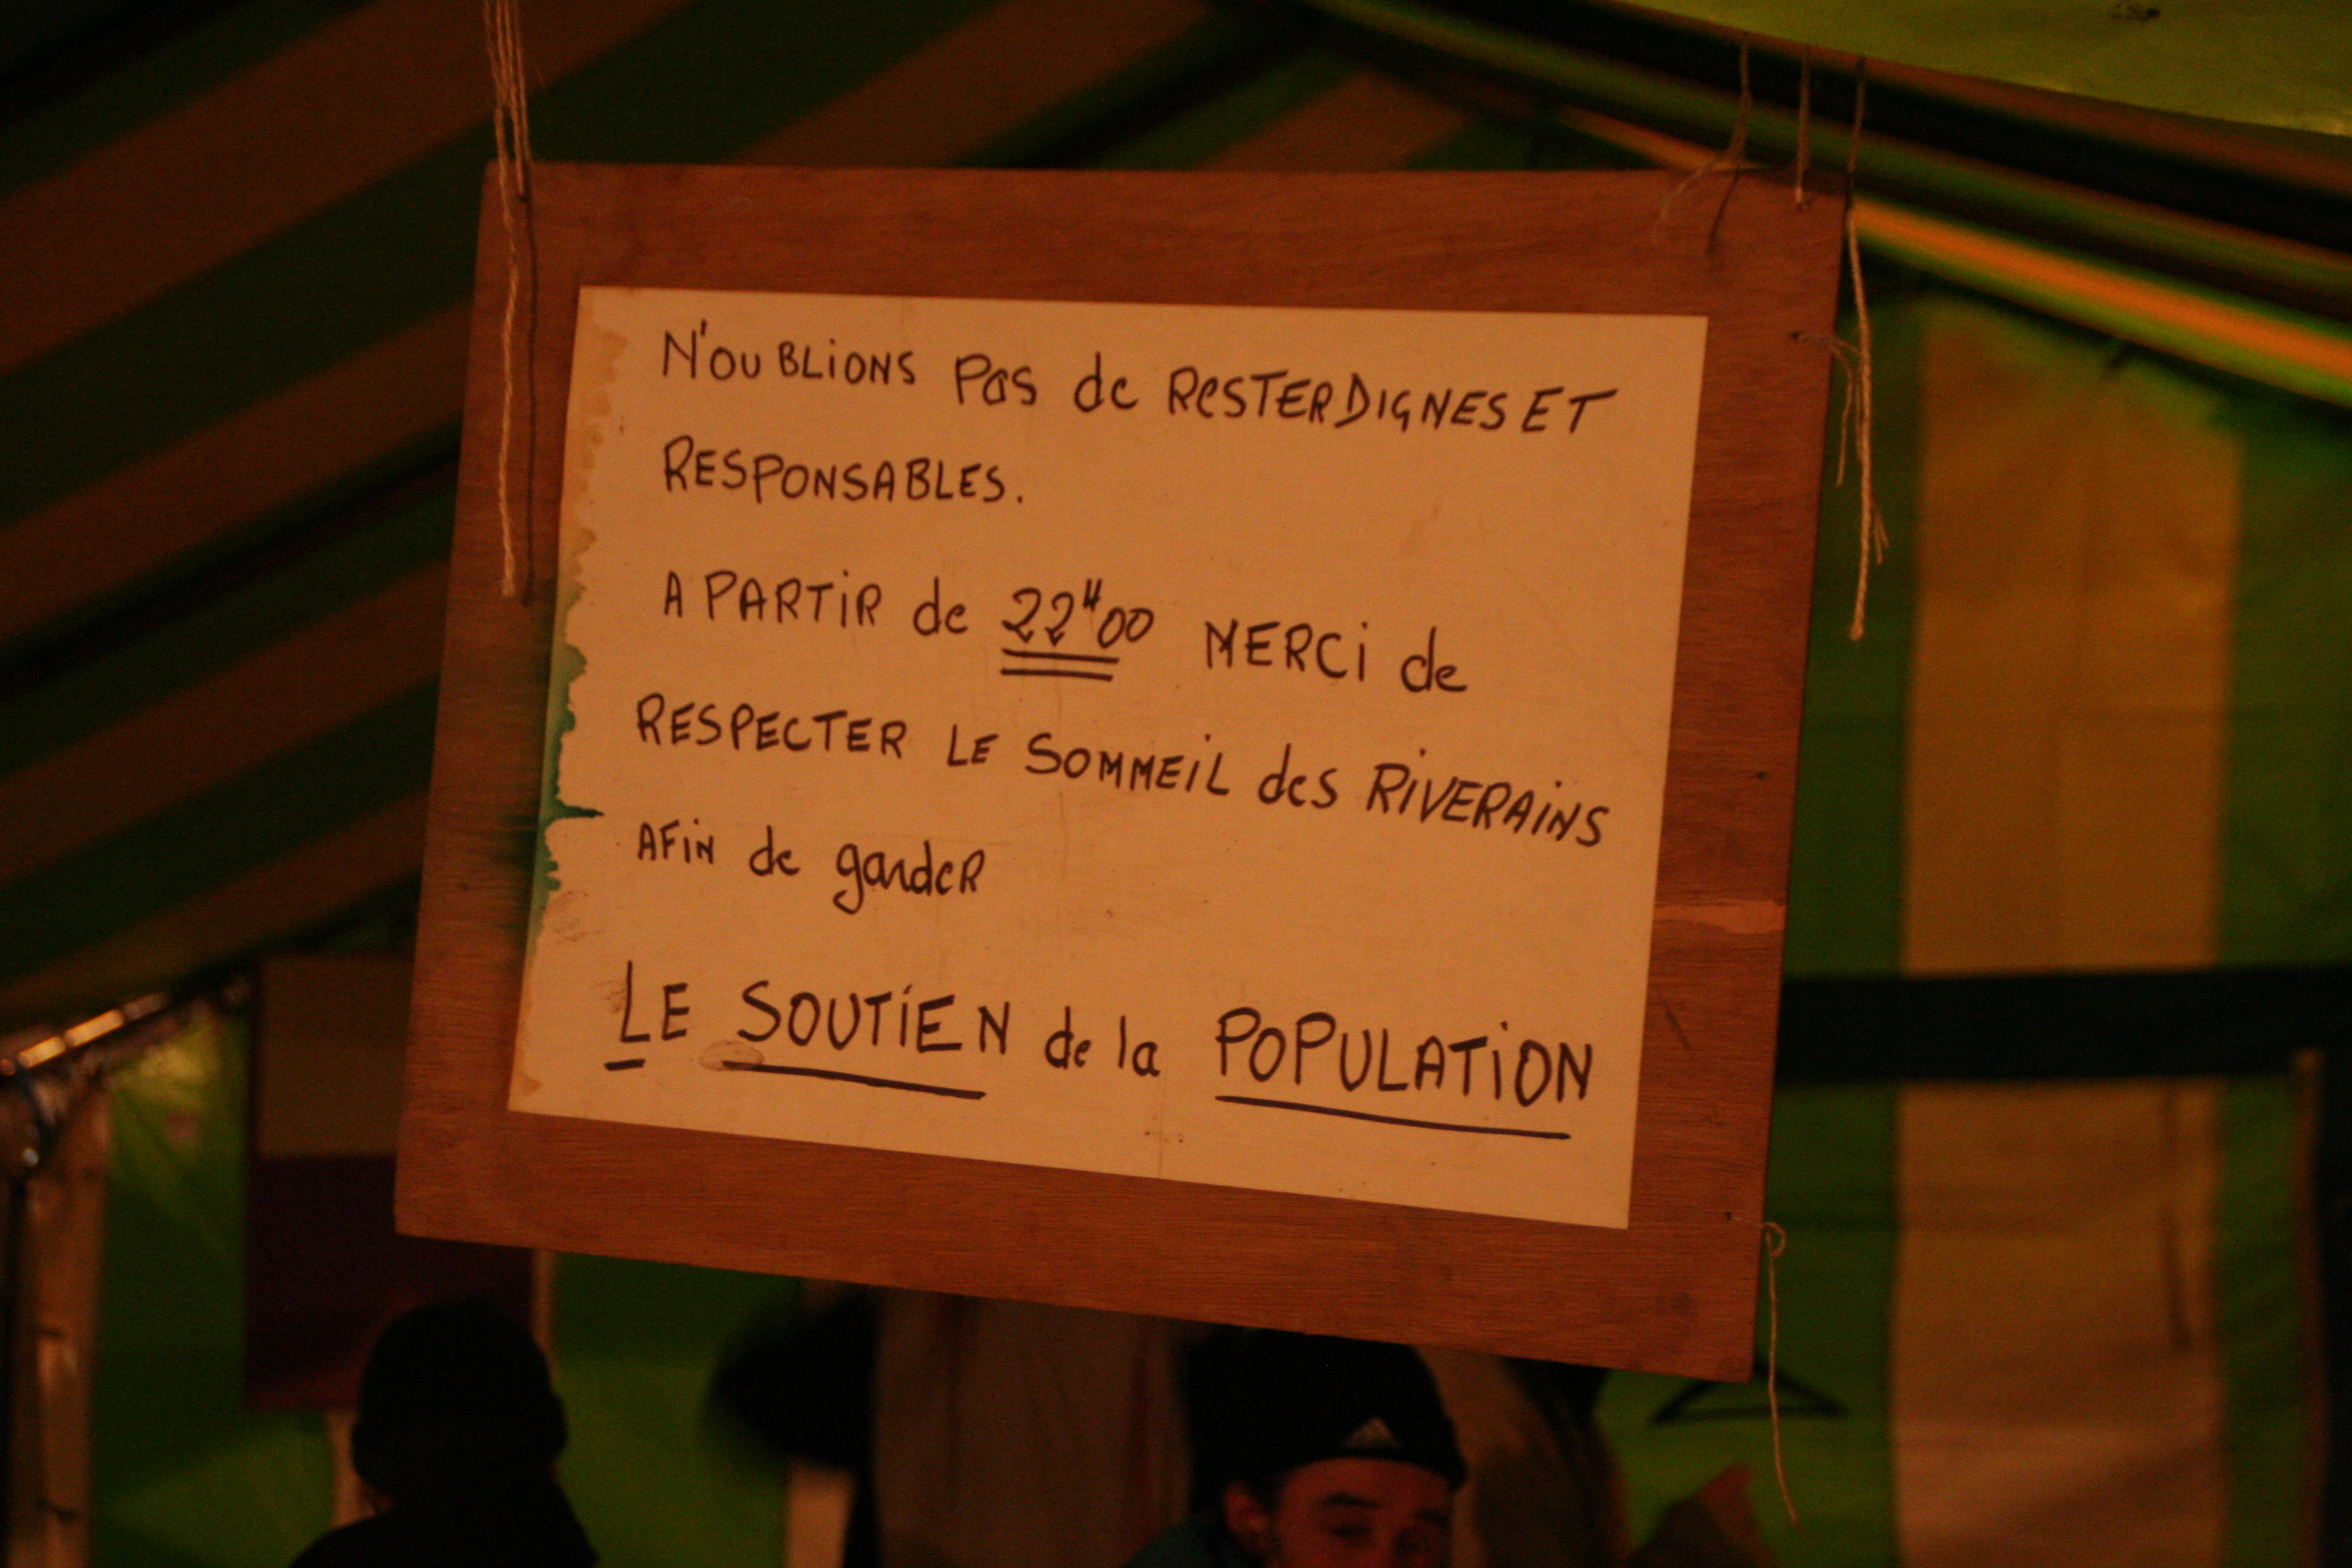 N'OUBLIONS PAS de RESTER DIGNES ET
RESPONSABLES.
A PARTIR de 22H00 MERCI de
RESPECTER LE SOMMEIL des RIVERAINS
AFIN de gardeR
LE SOUTIEN de la POPULATION